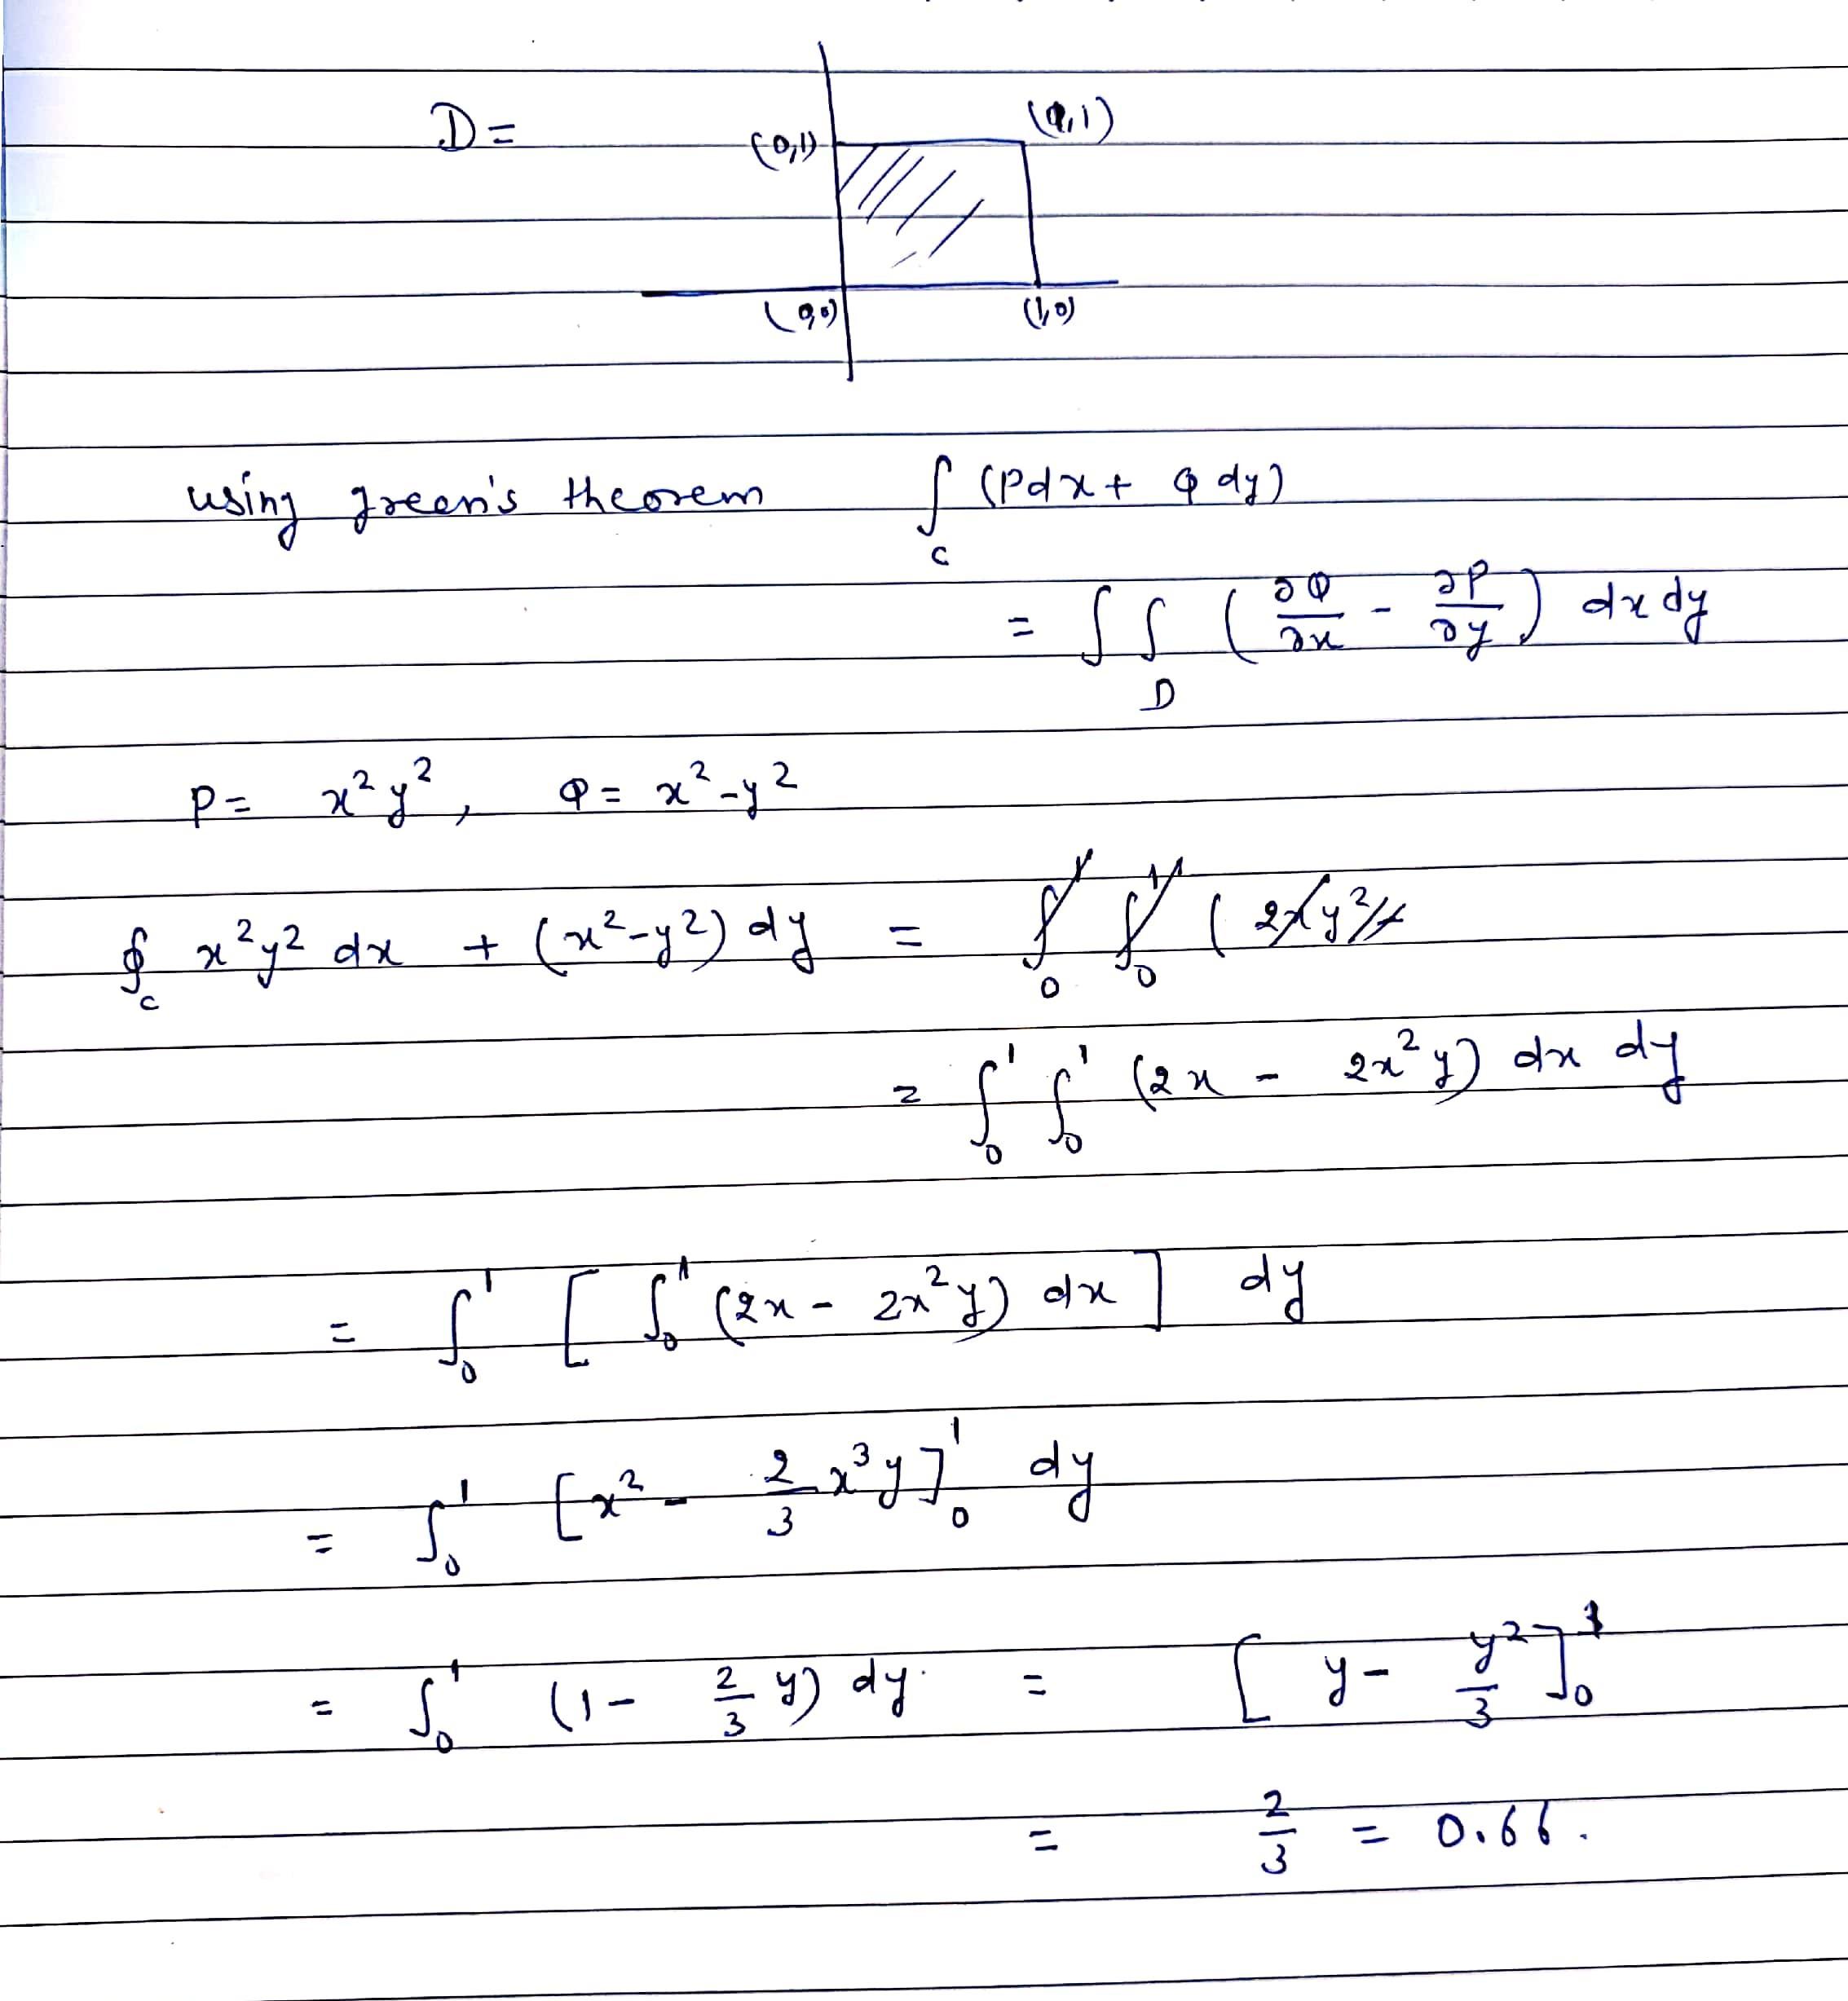 D =
(0,1)
(1,1)
(0,0)
(1,0)
using green's theorem ∫_C (Pdx + Q dy)
= ∫∫_D (∂Q/∂x - ∂P/∂y) dx dy
P = x²y², Q = x²-y²
∮_C x²y² dx + (x²-y²) dy =
= ∫₀¹ ∫₀¹ (2x - 2x²y) dx dy
= ∫₀¹ [ ∫₀¹ (2x - 2x²y) dx ] dy
= ∫₀¹ [x² - 2/3 x³y]₀¹ dy
= ∫₀¹ (1 - 2/3 y) dy = [ y - y²/3 ]₀¹
= 2/3 = 0.66.